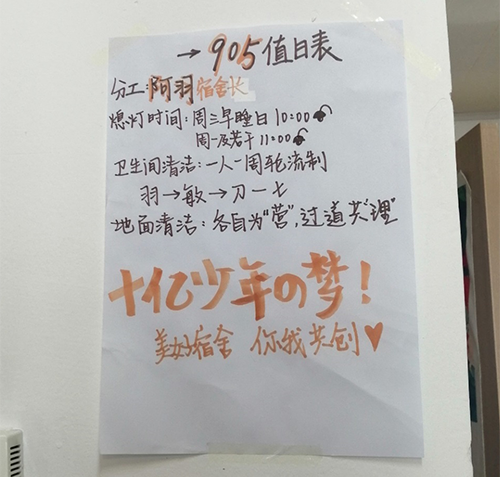 →905值日表
分工:阿羽宿舍长
熄灯时间:周三早睡日10:00
周一及若干11:00
卫生间清洁:一人一周轮流制
羽→敏→刀一七
地面清洁:各自为"营",过道共"理"
十亿少年の梦!
美妙宿舍 你我共创♥